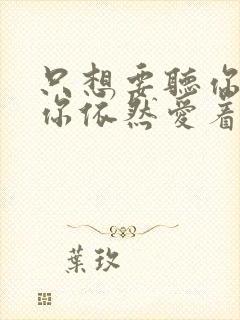 只想要聽你
你依然愛着
葉玖